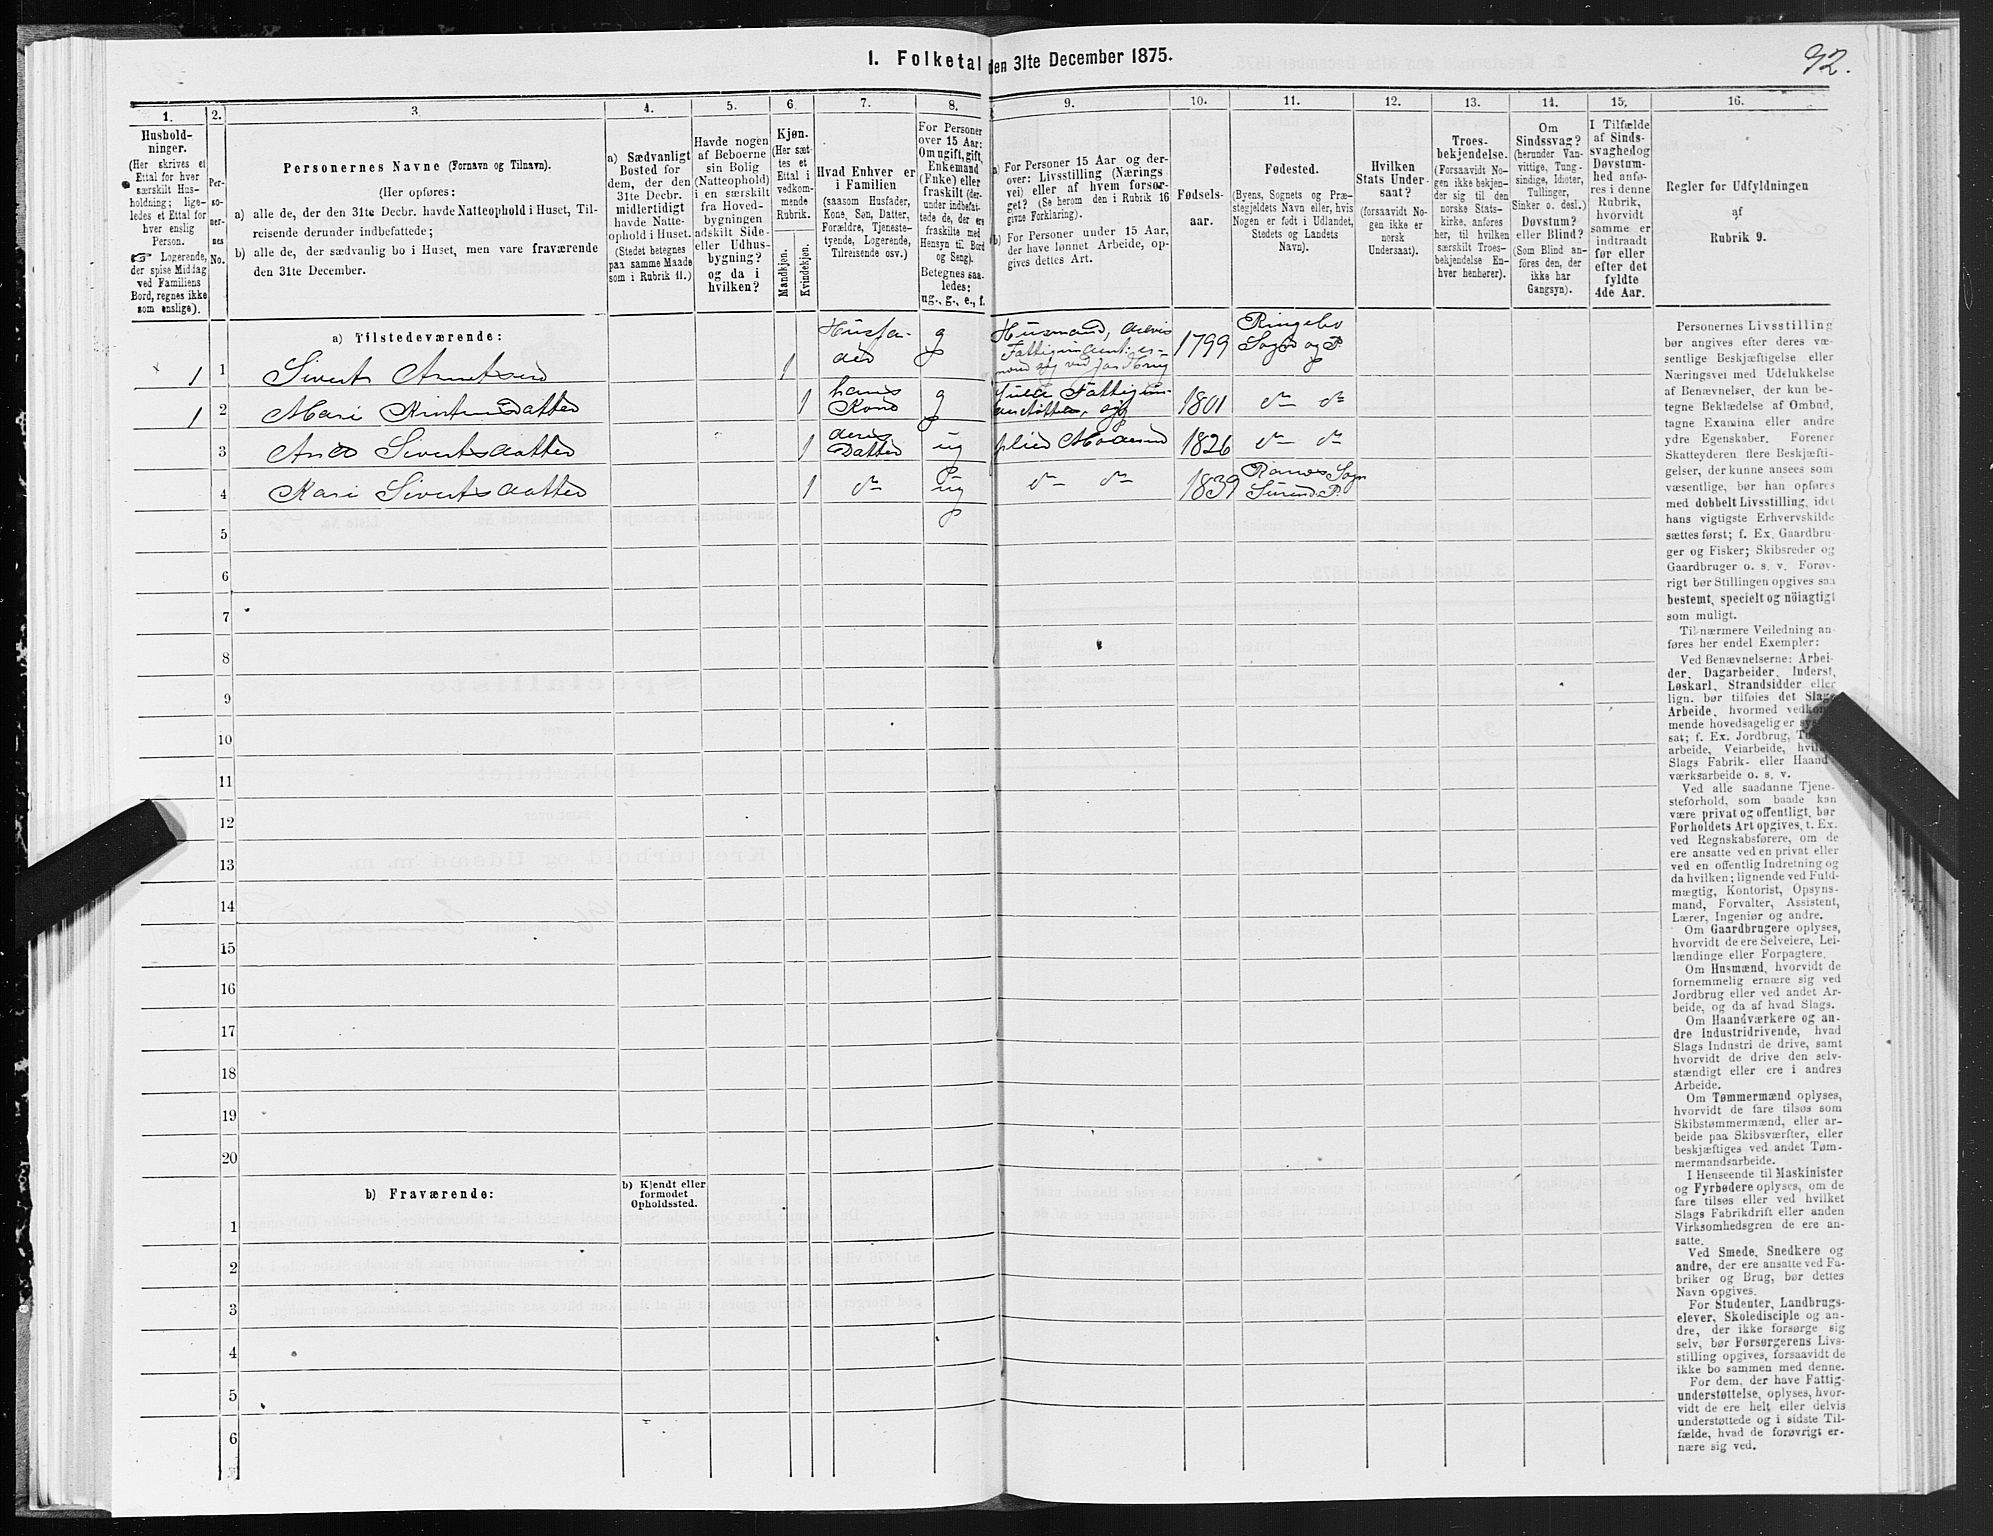 I. Folketal den 31te December 1875.
92.
1. 2. 3. 4. 5. 6. 7. 8. 9. 10. 11. 12. 13. 14. 15. 16.
Hushold-
ninger.
(Her skrives et
Ettal for hver
særskilt Hus-
holdning; lige-
ledes et Ettal for
hver enslig
Person.
☞ Logerende,
der spise Middag
ved Familiens
Bord, regnes ikke
som enslige).
Per-
so-
ner-
nes
No.
Personernes Navne (Fornavn og Tilnavn).
(Her opføres:
a) alle de, der den 31te Decbr. havde Natteophold i Huset, Til-
reisende derunder indbefattede;
b) alle de, der sædvanlig bo i Huset, men vare fraværende
den 31te December.
a) Sædvanligt
Bosted for
dem, der den
31te Decbr.
midlertidigt
havde Natte-
ophold i Huset.
(Stedet betegnes
paa samme Maade
som i Rubrik 11.)
Havde nogen
af Beboerne
sin Bolig
(Natteophold)
i en særskilt
fra Hoved-
bygningen
adskilt Side-
eller Udhus-
bygning?
og da i
hvilken?
Kjøn.
(Her sæt-
tes et
Ettal i
vedkom-
mende
Rubrik.
Mandkjøn.
Kvindekjøn.
Hvad Enhver er
i Familien
(saasom Husfader,
Kone, Søn, Datter,
Forældre, Tjeneste-
tyende, Logerende,
Tilreisende osv.)
For Personer
over 15 Aar:
Om ugift, gift,
Enkemand
(Enke) eller
fraskilt (der-
under indbefat-
tede de, der ere
fraskilte med
Hensyn til Bord
og Seng).
Betegnes saa-
ledes:
ug., g., e., f.
a) For Personer 15 Aar og der-
over: Livsstilling (Nærings
vei) eller af hvem forsør-
get? (Se herom den i Rubrik 16
givne Forklaring).
b) For Personer under 15 Aar,
der have lønnet Arbeide, op-
gives dettes Art.
Fødsels-
aar.
Fødested.
(Byens, Sognets og Præ-
stegjeldets Navn eller, hvis
Nogen er født i Udlandet,
Stedets og Landets
Navn).
Hvilken
Stats Under-
saat?
(forsaavidt No-
gen ikke er
norsk
Undersaat).
Troes-
bekjendelse.
(Forsaavidt No-
gen ikke bekjen-
der sig til den
norske Stats-
kirke, anføres
her, til hvilken
særskilt Troes-
bekjendelse En-
hver henhører).
Om
Sindssvag?
(herunder Van-
vittige, Tung-
sindige, Idioter,
Tullinger,
Sinker o. desl.)
Døvstum?
eller Blind?
(Som Blind an-
føres den, der
ikke har
Gangsyn).
I Tilfælde
af Sinds-
svaghed og
Døvstum-
hed anfø-
res i denne
Rubrik,
hvorvidt
samme er
indtraadt
før eller
efter det
fyldte
4de Aar.
Regler for Udfyldningen
af
Rubrik 9.
a) Tilstedeværende:
1 1 Sivert Arnetsen 1 Husfa-
der g Husmand, delvis 1799 Ringebo
Sogn og P.
1 2 Mari Kristensdatter 1 hans
Kone g 1801 do do
3 Sivertsdatter 1 deres
Datter ug 1826 do do
4 Kari Sivertsdatter 1 do ug do do 1839 Ranes Sogn
Surend. P.
5
6
7
8
9
10
11
12
13
14
15
16
17
18
19
20
b) Fraværende:
b) Kjendt eller
formodet
Opholdssted.
1
2
3
4
5
6
Personernes Livsstilling
bør angives efter deres væ-
sentlige Beskjæftigelse eller
Næringsvei med Udelukkelse
af Benævnelser, der kun be-
tegne Beklædelse af Ombud,
tagne Examina eller andre
ydre Egenskaber. Forener
Skatteyderen flere Beskjæfti-
gelser, der kunne ansees som
væsentlige, bør han opføres
med dobbelt Livsstilling, idet
hans vigtigste Erhvervskilde
sættes først; f. Ex. Gaardbru-
ger og Fisker; Skibsreder og
Gaardbruger o. s. v. Forøv-
rigt bør Stillingen opgives saa
bestemt, specielt og nöiagtigt
som muligt.
Til nærmere Veiledning an-
føres her endel Exempler:
Ved Benævnelserne: Arbei-
der, Dagarbeider, Inderst,
Løskarl, Strandsidder eller
lign. bør tilføies det Slags
Arbeide, hvormed vedkom-
mende hovedsagelig er syssel-
sat; f. Ex. Jordbrug,
arbeide, Veiarbeide,
Slags Fabrik- eller Haand-
værksarbeide o. s. v.
Ved alle saadanne Tjene-
steforhold, som baade kan
være privat og offentligt, bør
Forholdets Art opgives, t. Ex.
ved Regnskabsførere, om de
ere ansatte ved en privat eller
ved en offentlig Indretning og
da hvilken; lignende ved Fuld-
mægtig, Kontorist, Opsyns-
mand, Forvalter, Assistent,
Lærer, Ingeniør og andre.
Om Gaardbrugere oplyses,
hvorvidt de ere Selveiere, Lei-
lændinge eller Forpagtere.
Om Husmænd, hvorvidt de
fornemmelig ernære sig ved
Jordbrug eller ved andet Ar-
beide, og da af hvad Slags.
Om Haandværkere og an-
dre Industridrivende, hvad
Slags Industri de drive, samt
hvorvidt de drive den selv-
stændigt eller ere i andres
Arbeide.
Om Tømmermænd oplyses,
hvorvidt de fare tilsøs som
Skibstømmermænd, eller ar-
beide paa Skibsværfter, eller
beskjæftiges ved andet Tøm-
mermandsarbeide.
I Henseende til Maskinister
og Fyrbødere oplyses, om de
fare tilsøs eller ved hvilket
Slags Fabrikdrift eller anden
Virksomhedsgren de ere an-
satte.
Ved Smede, Snedkere og
andre, der ere ansatte ved Fa-
briker og Brug, bør dettes
Navn opgives.
For Studenter, Landbrugs-
elever, Skoledisciple og an-
dre, der ikke forsørge sig
selv, bør Forsørgerens Livs-
stilling opgives, forsaavidt de
ikke bo sammen med denne.
For dem, der have Fattig-
understøttelse, oplyses, hvor-
vidt de ere helt eller delvis
understøttede og i sidste Til-
fælde, hvad de forøvrigt er-
nære sig ved.